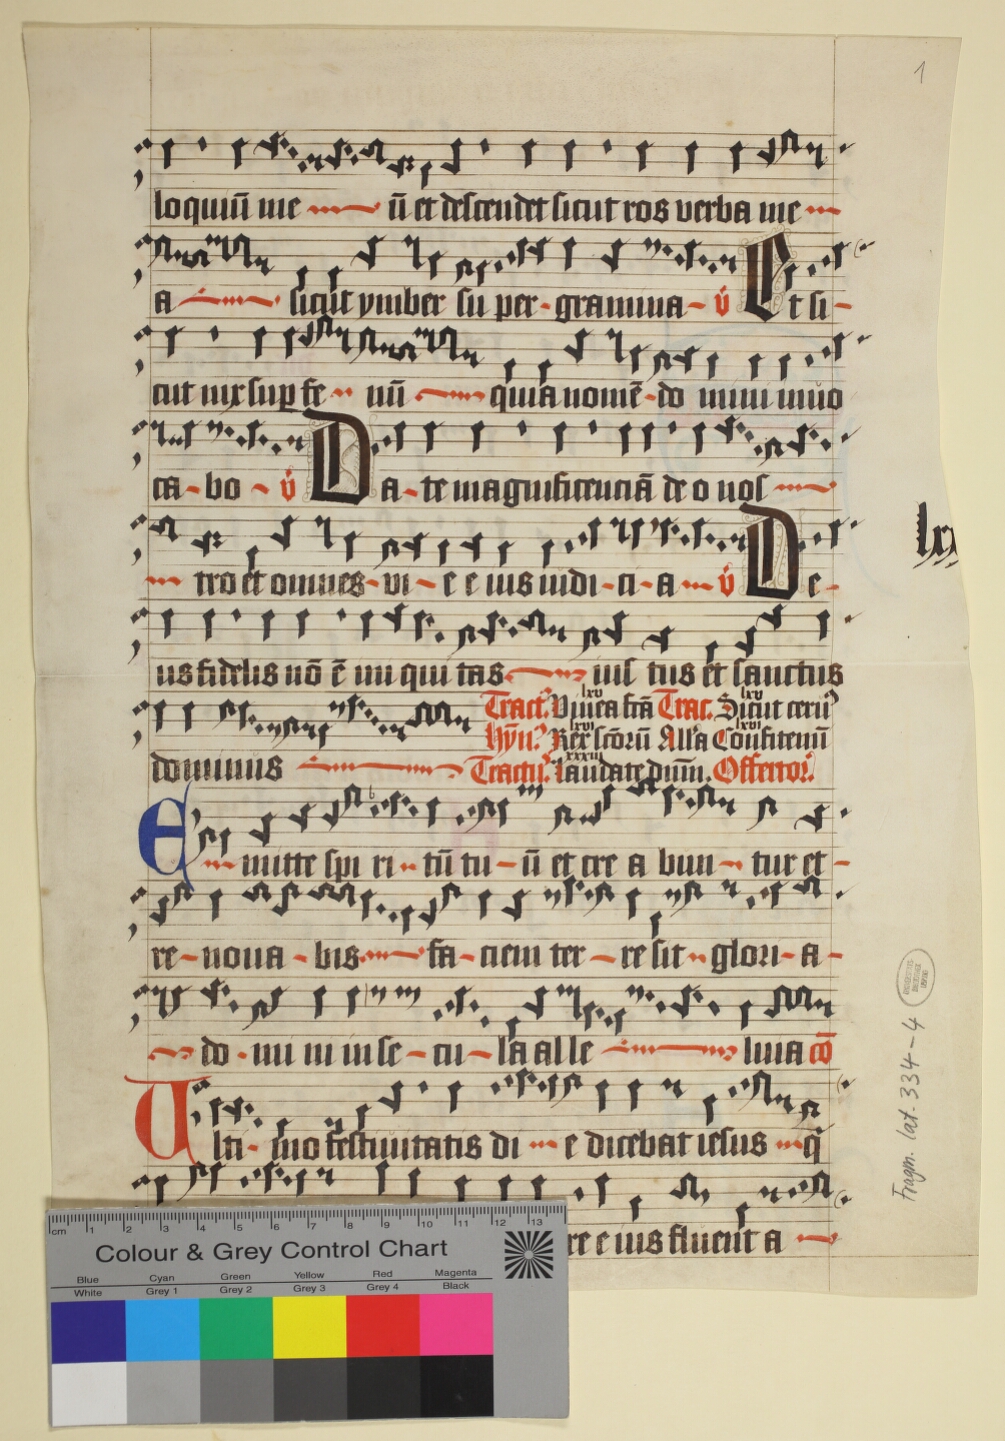 1
loquiū me ū et descendet sicut ros verba me
a sicut ymber su per gramina v̇ Et si
cut nix sup fe nū quia nomē do mini inuo
ca bo v̇ Da te magnificenciā de o nos
tro et omnes vi e e ius iudi ci a v̇ De
lxx
us fidelis nō ē ini qui tas ius tus et sanctus
Tract? Vinea fcā Trac. Sicut ceru?
lxv lxv
Hyn? Rex scōrū Alla Confitemi
lxvi lxvi
dominus Tractu? laudate dnm. Offertor?
xxxiii
E mitte spi ri tū tu ū et cre a bun tur et
re noua bis fa ciem ter re sit glori a
do mi ni in se cu la alle luia cō
Ulti mo festiuitatis di e dicebat iesus q
re e ius fluent a
Fragm. lat. 334-4
cm 1 2 3 4 5 6 7 8 9 10 11 12 13
Colour & Grey Control Chart
Blue Cyan Green Yellow Red Magenta
White Grey 1 Grey 2 Grey 3 Grey 4 Black